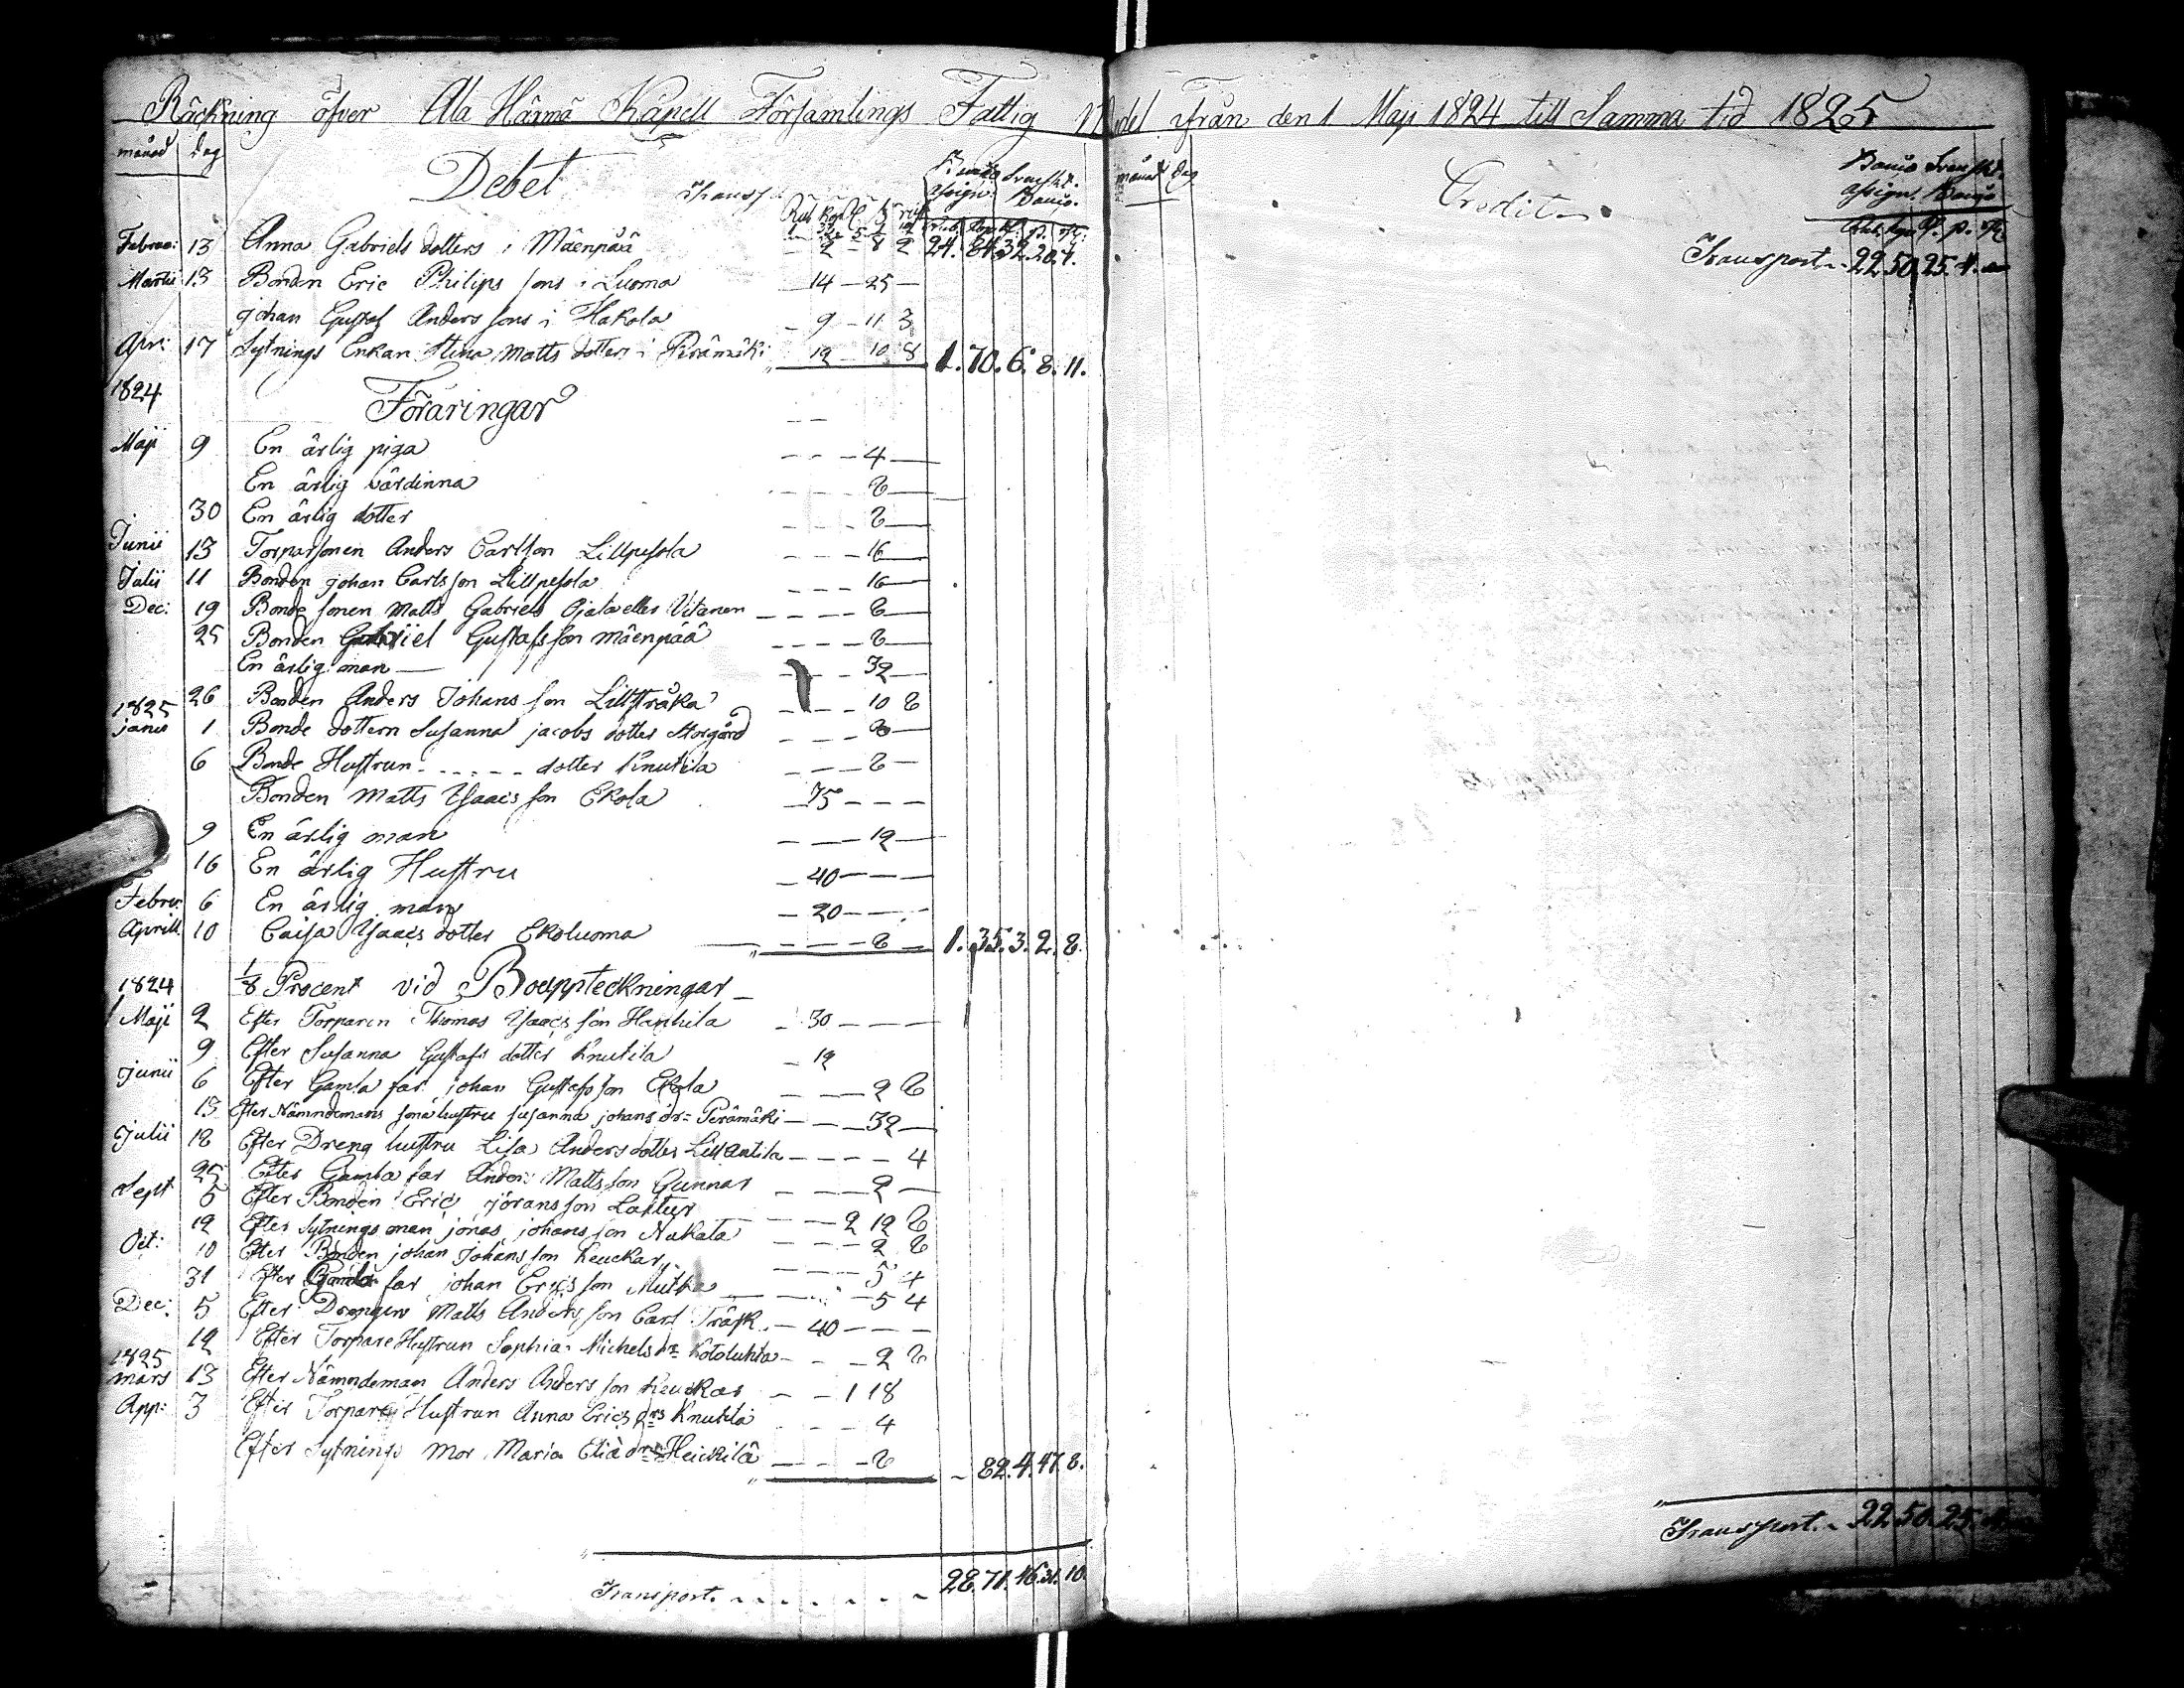 Räckning öfver Ala Härmä Kapell Församlings Fattig Medel ifrån den 1 Maji 1824 till Samma tid 1825
månad dag
Debet
Transp.
Banco Assign. Svenskt Banco.
Rub. Kop. R. sk. rst.
Februa: 13 Anna Gabriels dotters i Mäenpää — 2 — 8 2 24. 84. 32. 20. 4.
Martii 13 Bonden Eric Philips sons i Luoma — 14 — 25 —
Johan Gustaf Anders sons i Hakola — 9 — 11 3
Apri: 17 Sytnings Enkan Stina Matts dotters i Perämäki 12 — 10 8 1. 70. 6. 8. 11.
1824
Föräringar
Maji 9 En ärlig piga — — — 4 —
En ärlig värdinna — — — 8 —
30 En ärlig dotter — — — 8 —
Junii 13 Torparsonen Anders Carlsson Lillpesola — — — 16 —
Julii 11 Bonden Johan Carlsson Lillpesola — — — 16 —
Dec: 19 Bonde sonen Matts Gabriels Ojala eller Vitanen — — — 8 —
25 Bonden Gabriel Gustafsson Mäenpää — — — 8 —
En ärlig man — — — 32 —
26 Bonden Anders Johans son Lillträka — — — 10 8
1825
Janu 1 Bonde dottern Susanna Jacobs dotter Storgård — — — 8 —
6 Bonde Hustrun - - - - - - dotter Knutila — — — 8 —
Bonden Matts Isaacs son Ekola — 75 — — —
9 En ärlig man — — — 12 —
16 En ärlig Hustru — 40 — — —
Febru: 6 En ärlig man — 20 — — —
Aprill 10 Caisa Isaacs dotter Ekoluoma — — — 8 — 1. 35. 3. 2. 8.
1824 1/8 Procent vid Bouppteckningar
Maji 2 Efter Torparen Thomas Isaacs son Hanhila — 30 — — —
9 Efter Susanna Gustafs dotter Knutila — 12
Junii 6 Efter Gamla far Johan Gustafsson Ekola — — — 2 8
13 Efter Nämndemans sona hustru Susanna Johans dr= Perämäki — — — 32 —
Julii 18 Efter Dreng hustru Lisa Anders dotter Lill Antila — — — — 4
25 Efter Gamla far Anders Matts son Gunnar — — — 2 —
Sept 5 Efter Bonden Eric Jörans son Laktus — — 2 12 8
12 Efter Sytnings man Jonas Johans son Nukala — — — 2 8
Oct: 10 Efter Bonden Johan Johans son Keuckar — — — 5 4
31 Efter Gamla far Johan Erics son Mutka — — — 5 4
Dec: 5 Efter Drengen Matts Anders son Carl Träsk — 40 — — —
12 Efter Torpare Hustrun Sophia Michels dr= Kotoluhta — — — 2 8
1825
Mars 13 Efter Nämndeman Anders Anders son Keuckar — — 1 18
App: 3 Efter Torpare Hustrun Anna Erics drs Knutila — — — 4
Efter Sytnings Mor Maria Elia dr Heickilä — — — 8 — 82. 4. 47. 8.
Transport. 28. 71. 46. 31. 10.
månad dag
Credit
Banco Assign. Svenskt Banco
Rub. kop. R. sk. rst.
Transport. 22. 50. 25. 4.
Transport. 22. 50. 25. 4.